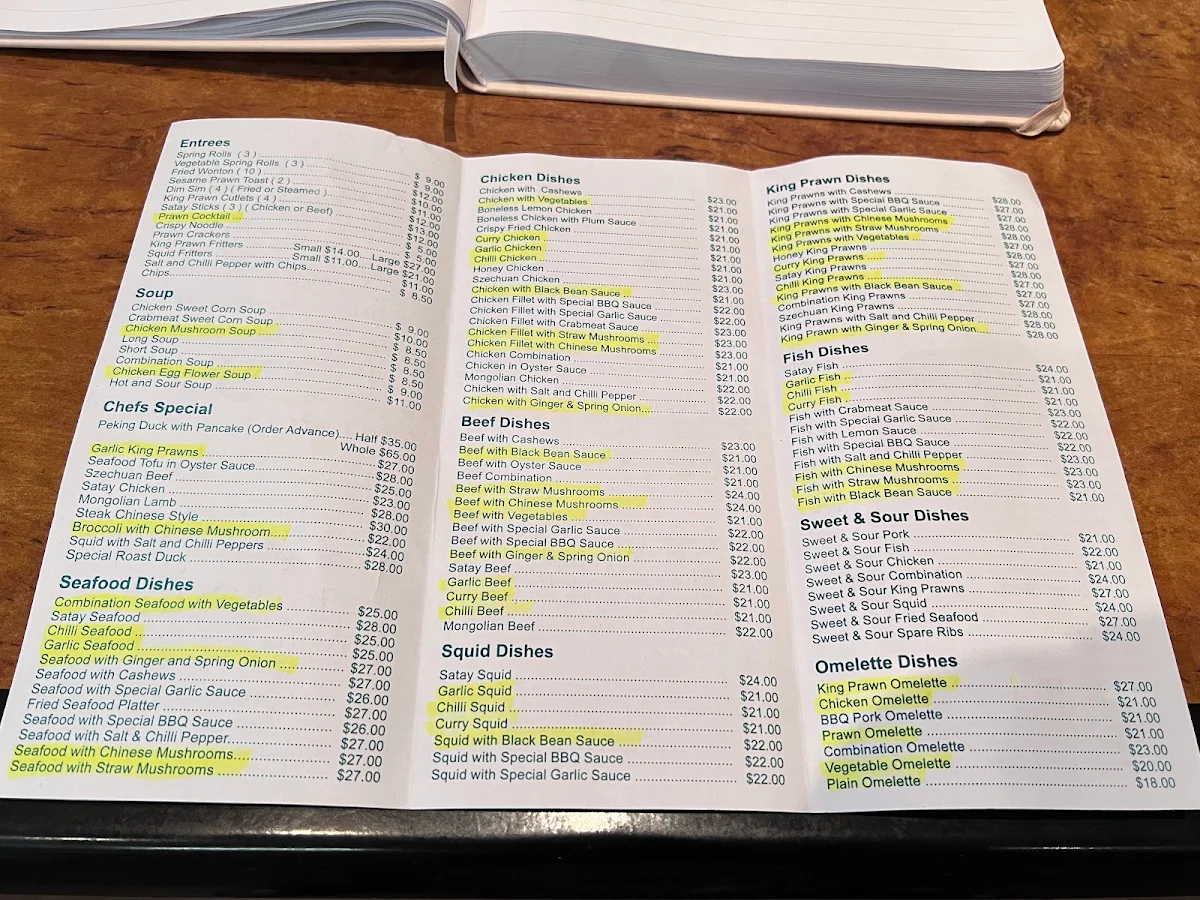 Entrees
Spring Rolls ( 3 ) $ 9.00
Vegetable Spring Rolls ( 3 ) $ 9.00
Fried Wonton ( 10 ) $12.00
Sesame Prawn Toast ( 2 ) $10.00
Dim Sim ( 4 ) ( Fried or Steamed ) $11.00
King Prawn Cutlets ( 4 ) $12.00
Satay Sticks ( 3 ) ( Chicken or Beef) $13.00
Prawn Cocktail $12.00
Crispy Noodle $ 5.00
Prawn Crackers $ 5.00
King Prawn Fritters Small $14.00....Large $27.00
Squid Fritters Small $11.00....Large $21.00
Salt and Chilli Pepper with Chips $11.00
Chips $ 8.50
Soup
Chicken Sweet Corn Soup $ 9.00
Crabmeat Sweet Corn Soup $10.00
Chicken Mushroom Soup $ 8.50
Long Soup $ 8.50
Short Soup $ 8.50
Combination Soup $ 8.50
Chicken Egg Flower Soup $ 9.00
Hot and Sour Soup $11.00
Chefs Special
Peking Duck with Pancake (Order Advance).... Half $35.00
Whole $65.00
Garlic King Prawns $27.00
Seafood Tofu in Oyster Sauce $28.00
Szechuan Beef $25.00
Satay Chicken $23.00
Mongolian Lamb $28.00
Steak Chinese Style $30.00
Broccoli with Chinese Mushroom $22.00
Squid with Salt and Chilli Peppers $24.00
Special Roast Duck $28.00
Seafood Dishes
Combination Seafood with Vegetables $25.00
Satay Seafood $28.00
Chilli Seafood $25.00
Garlic Seafood $25.00
Seafood with Ginger and Spring Onion $27.00
Seafood with Cashews $27.00
Seafood with Special Garlic Sauce $26.00
Fried Seafood Platter $27.00
Seafood with Special BBQ Sauce $26.00
Seafood with Salt & Chilli Pepper $27.00
Seafood with Chinese Mushrooms $27.00
Seafood with Straw Mushrooms $27.00
Chicken Dishes
Chicken with Cashews $23.00
Chicken with Vegetables $21.00
Boneless Lemon Chicken $21.00
Boneless Chicken with Plum Sauce $21.00
Crispy Fried Chicken $21.00
Curry Chicken $21.00
Garlic Chicken $21.00
Chilli Chicken $21.00
Honey Chicken $21.00
Szechuan Chicken $23.00
Chicken with Black Bean Sauce $21.00
Chicken Fillet with Special BBQ Sauce $22.00
Chicken Fillet with Special Garlic Sauce $22.00
Chicken Fillet with Crabmeat Sauce $23.00
Chicken Fillet with Straw Mushrooms $23.00
Chicken Fillet with Chinese Mushrooms $23.00
Chicken Combination $21.00
Chicken in Oyster Sauce $21.00
Mongolian Chicken $22.00
Chicken with Salt and Chilli Pepper $22.00
Chicken with Ginger & Spring Onion $22.00
Beef Dishes
Beef with Cashews $23.00
Beef with Black Bean Sauce $21.00
Beef with Oyster Sauce $21.00
Beef Combination $21.00
Beef with Straw Mushrooms $24.00
Beef with Chinese Mushrooms $24.00
Beef with Vegetables $21.00
Beef with Special Garlic Sauce $22.00
Beef with Special BBQ Sauce $22.00
Beef with Ginger & Spring Onion $22.00
Satay Beef $23.00
Garlic Beef $21.00
Curry Beef $21.00
Chilli Beef $21.00
Mongolian Beef $22.00
Squid Dishes
Satay Squid $24.00
Garlic Squid $21.00
Chilli Squid $21.00
Curry Squid $21.00
Squid with Black Bean Sauce $22.00
Squid with Special BBQ Sauce $22.00
Squid with Special Garlic Sauce $22.00
King Prawn Dishes
King Prawns with Cashews $28.00
King Prawns with Special BBQ Sauce $27.00
King Prawns with Special Garlic Sauce $27.00
King Prawns with Chinese Mushrooms $28.00
King Prawns with Straw Mushrooms $28.00
King Prawns with Vegetables $27.00
Honey King Prawns $28.00
Curry King Prawns $27.00
Satay King Prawns $28.00
Chilli King Prawns $27.00
King Prawns with Black Bean Sauce $27.00
Combination King Prawns $27.00
Szechuan King Prawns $28.00
King Prawns with Salt and Chilli Pepper $28.00
King Prawn with Ginger & Spring Onion $28.00
Fish Dishes
Satay Fish $24.00
Garlic Fish $21.00
Chilli Fish $21.00
Curry Fish $21.00
Fish with Crabmeat Sauce $23.00
Fish with Special Garlic Sauce $22.00
Fish with Lemon Sauce $22.00
Fish with Special BBQ Sauce $22.00
Fish with Salt and Chilli Pepper $23.00
Fish with Chinese Mushrooms $23.00
Fish with Straw Mushrooms $23.00
Fish with Black Bean Sauce $21.00
Sweet & Sour Dishes
Sweet & Sour Pork $21.00
Sweet & Sour Fish $22.00
Sweet & Sour Chicken $21.00
Sweet & Sour Combination $24.00
Sweet & Sour King Prawns $27.00
Sweet & Sour Squid $24.00
Sweet & Sour Fried Seafood $27.00
Sweet & Sour Spare Ribs $24.00
Omelette Dishes
King Prawn Omelette $27.00
Chicken Omelette $21.00
BBQ Pork Omelette $21.00
Prawn Omelette $21.00
Combination Omelette $23.00
Vegetable Omelette $20.00
Plain Omelette $18.00